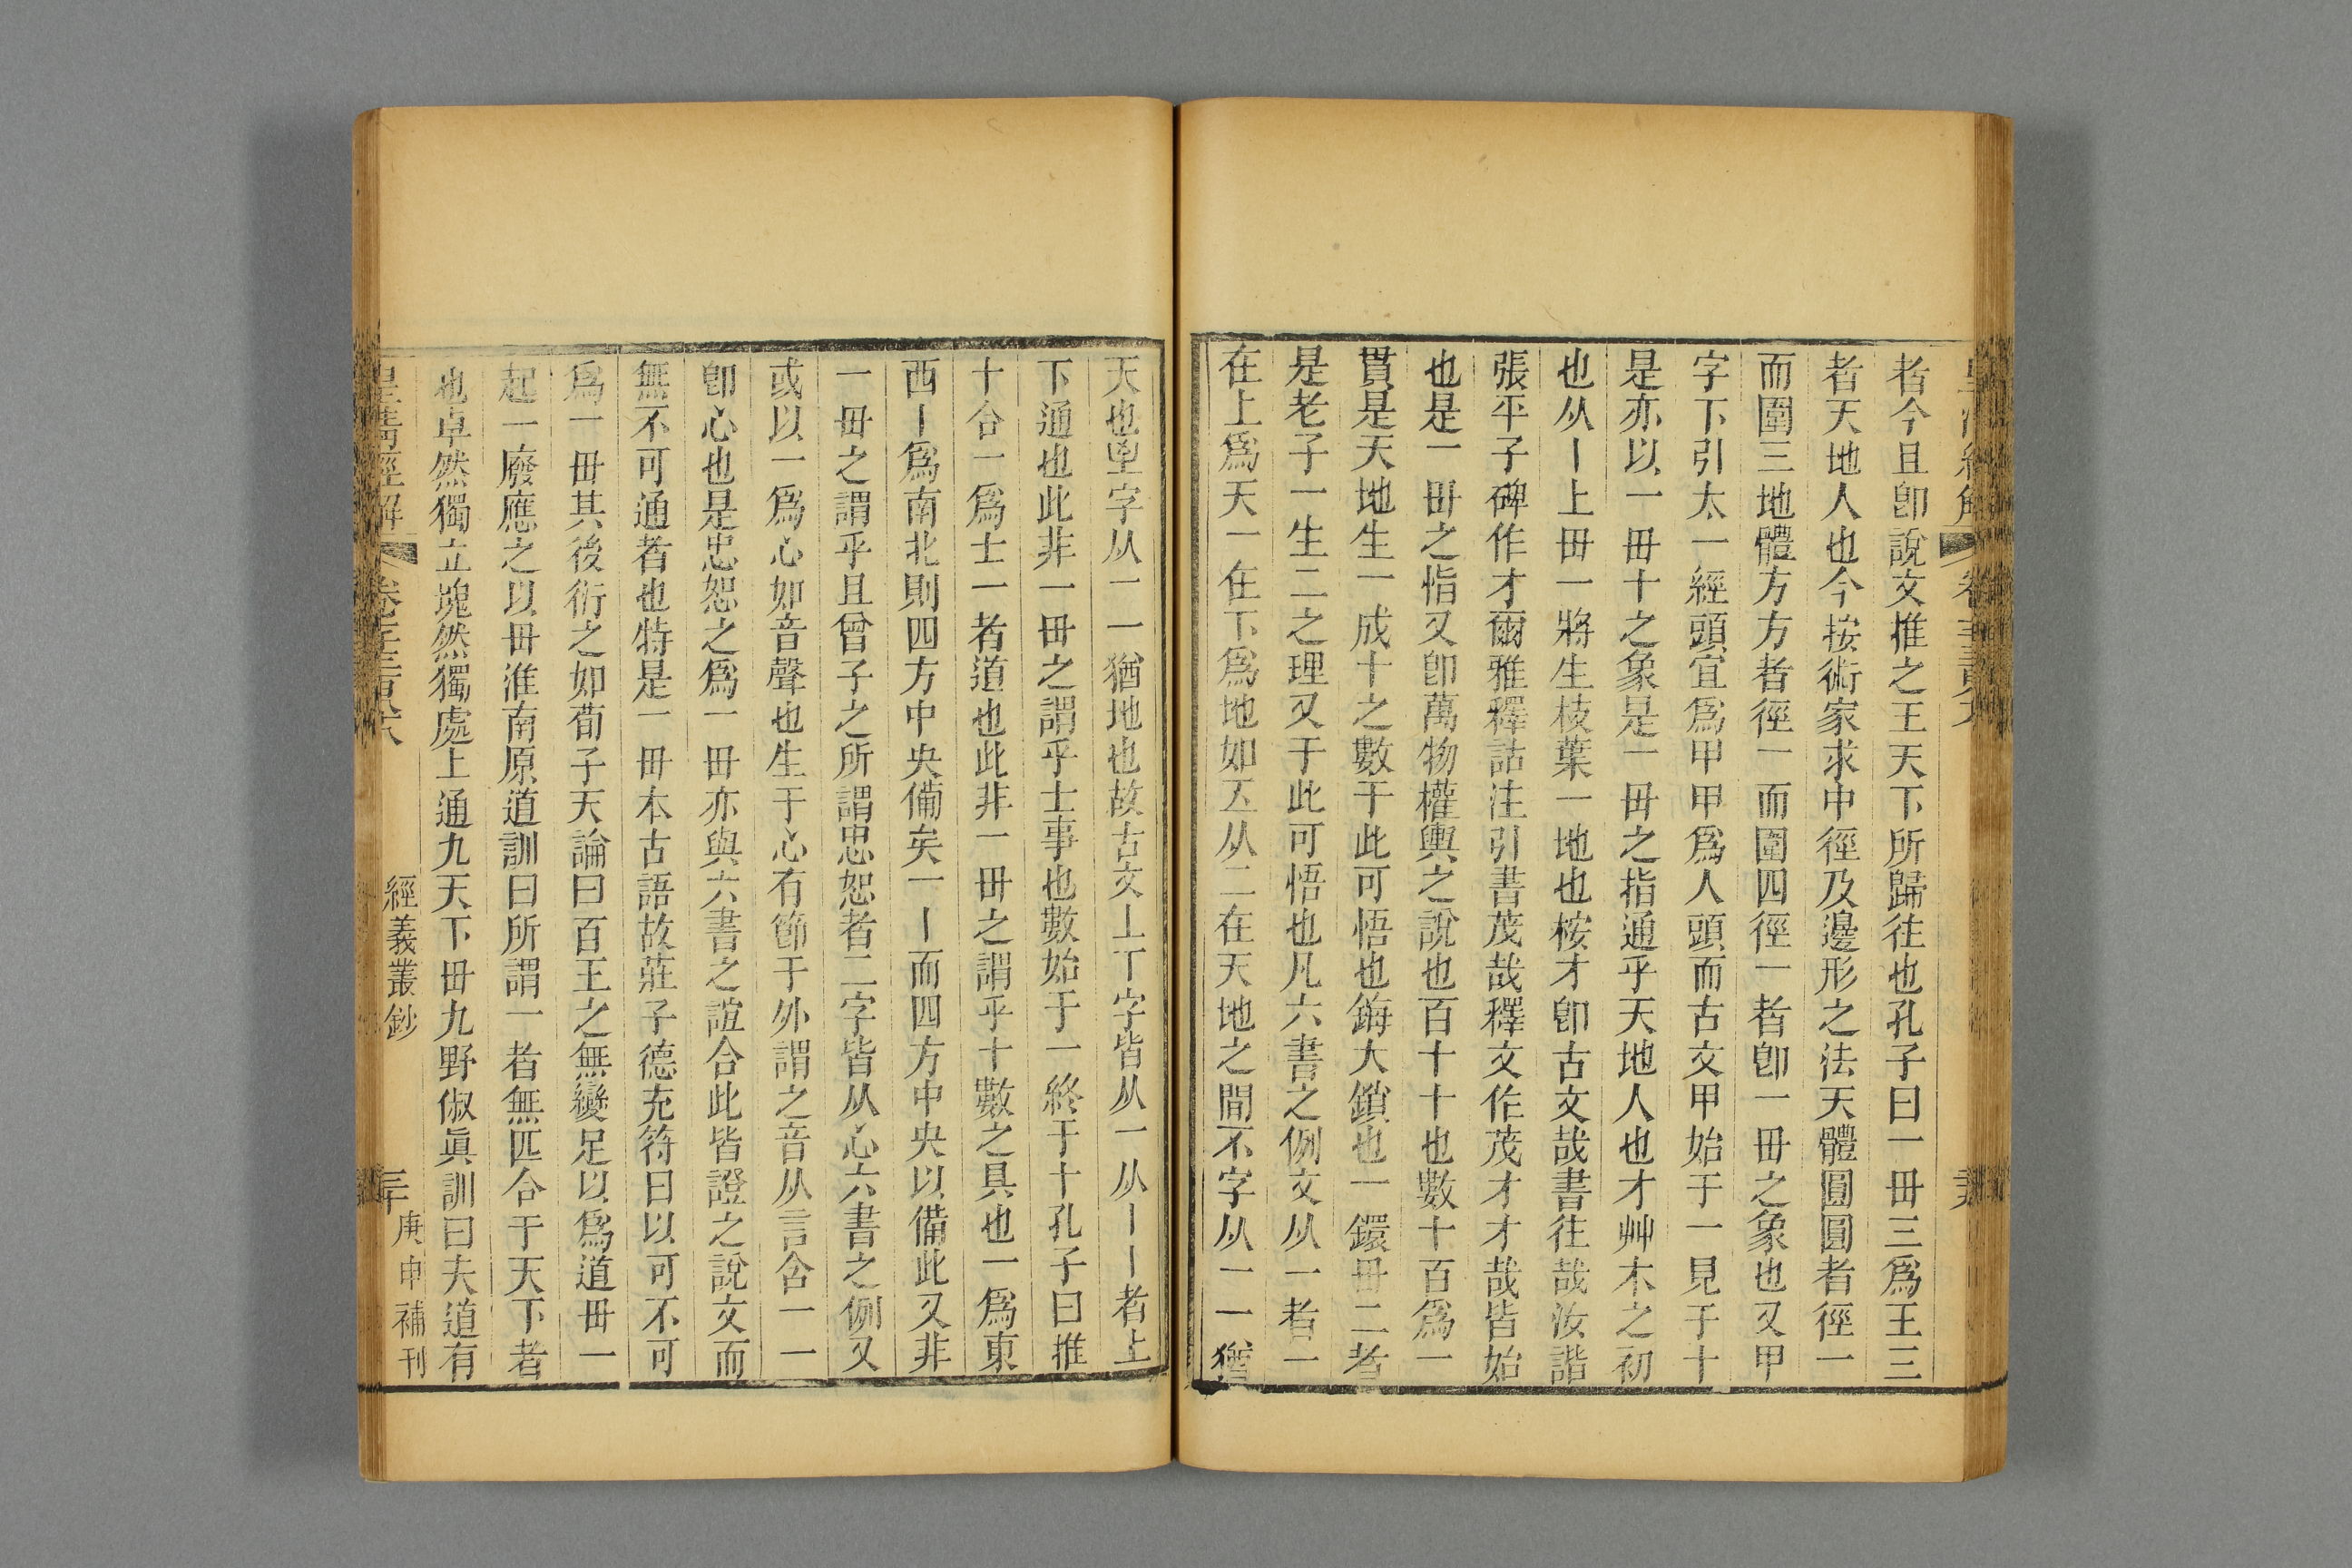 者今且卽說文推之王天下所歸往也孔子曰一毌三爲王三
者天地人也今按術家求中徑及邊形之法天體圓圓者徑一
而圍三地體方方者徑一而圍四徑一者卽一毌之象也又甲
字下引太一經頭宜爲甲甲爲人頭而古文甲始于一見于十
是亦以一毌十之象是一毌之指通乎天地人也才艸木之初
也从丨上毌一將生枝葉一地也桉才卽古文哉書往哉汝諧
張平子碑作才爾雅釋詁注引書茂哉釋文作茂才才哉皆始
也是一毌之恉又卽萬物權輿之說也百十十也數十百爲一
貫是天地生一成十之數于此可悟也鋂大鎖也一鐶毌二者
是老子一生二之理又于此可悟也凡六書之例文从一者一
在上爲天一在下爲地如㐅从二在天地之間不字从一一猶
天也坙字从一一猶地也故古文丄丅字皆从一从丨丨者上
下通也此非一毌之謂乎士事也數始于一終于十孔子曰推
十合一爲士一者道也此非一毌之謂乎十數之具也一爲東
西丨爲南北則四方中央備矣一丨而四方中央以備此又非
一毌之謂乎且曾子之所謂忠恕者二字皆从心六書之例又
或以一爲心如音聲也生于心有節于外謂之音从言含一一
卽心也是忠恕之爲一毌亦與六書之誼合此皆證之說文而
無不可通者也特是一毌本古語故莊子德充符曰以可不可
爲一毌其後衍之如荀子天論曰百王之無變足以爲道毌一
起一廢應之以毌淮南原道訓曰所謂一者無匹合于天下者
也卓然獨立塊然獨處上通九天下毌九野俶眞訓曰夫道有
皇淸經解
經義叢鈔
庚申補刊